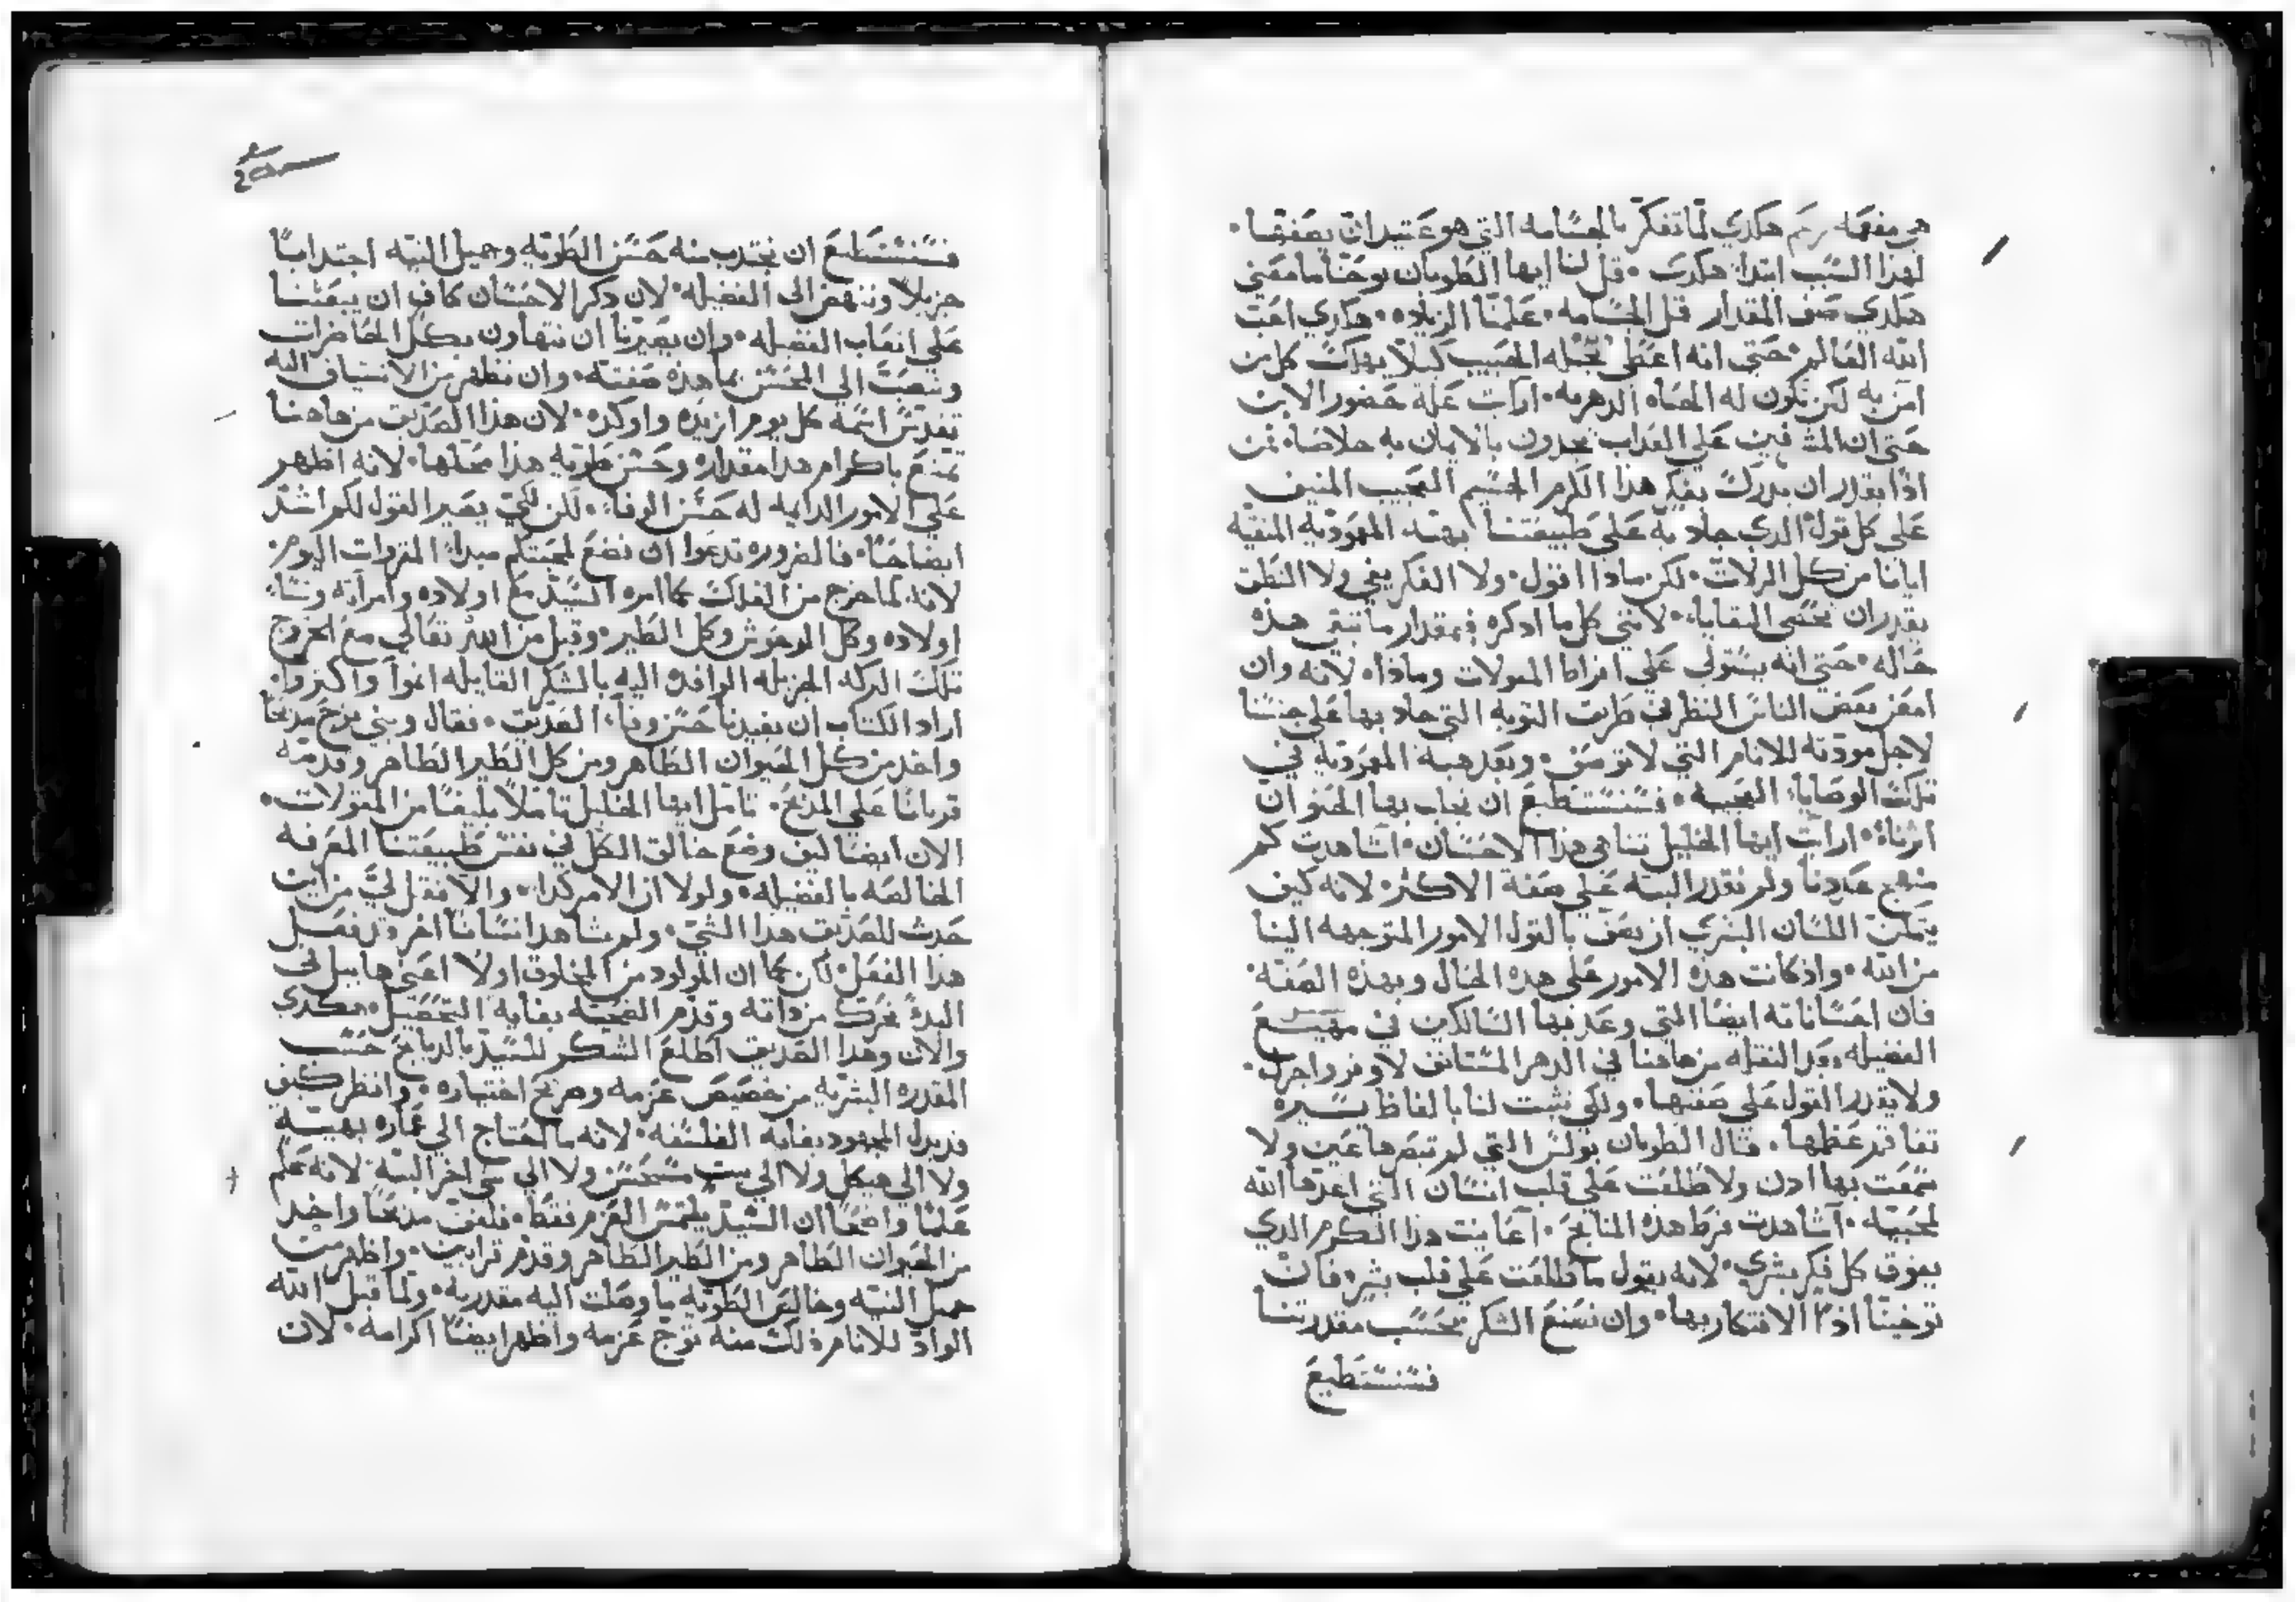 هي مفعمه رعم هكدي لما تفكر بالجسامه التي هو عتيد ان يصفها٠
لهذا السبب ابتدا هكدي ٠ قل لنا ايها الطوبان يوحنا ما معني
هكدي صف المقدار قل الجسامه٠ علمنا الزياده٠ هكدي احب
الله العالم٠ حتي انه اعطي نجله الحبيب كيلا يهلك كل من
امن به لكن تكون له الحياه الدهريه٠ ارايت علة حضور الابن
حتي ان المشرفين علي العداب يجدون بالايمان به خلاصا٠ فمن
اذًا يقدر ان يدرك بفكر هذا الكرم الجسيم العجيب المنيف
علي كل قول الدي جاد به علي طبيعتنا بهبة المعموديه المنقيه
ايانا من كل الزلات٠ لكن مادا اقول٠ ولا الفكر يفي ولا النطق
يقدر ان يحصي البقايا٠ لانني كل ما ادكره فبمقدار ما تبقي هذه
حاله٠ حتي انه يستولي علي افراط المقولات وماذا٠ لانه وان
امعن بعض الناس النظر في طريق التوبه التي جاد بها علي جنسنا
لاجل مودته للانام التي لا توصف٠ وبعد هبة المعموديه في
تلك الوصايا العجيبه٠ فسنستطيع ان نجاب بها الحنو ان
اثرناه٠ ارايت ايها الخليل تناهي هذا الاحسان٠ اشاهدت كم
منهج عددنا ولم نقدر البته علي صفة الاكثر٠ لانه كيف
يتمكن اللسان البشري ان يصف بالقول الامور المتوجهه الينا
من الله٠ واذ كانت هذه الامور علي هذه الحال وبهذه الصفه٠
فان احساناته ايضا التي وعد بها السالكين في مهيع
الفضيله وبعد النقله من هاهنا في الدهر المستانف لاوفر واجزل٠
ولا يقدر القول علي صفتها٠ ولكي نثبت لنا بالفاظ يسيره
تفاقم عظمها٠ قال الطوبان بولس التي لم تبصرها عين ولا
سمعت بها ادن ولا طلعت علي قلب انسان التي اعدها الله
لمحبيه٠ اشاهدت فرط هذه المنايح٠ اعاينت هذا الكرم الدي
يفوق كل فكر بشري٠ لانه يقول ما طلعت علي قلب بشر٠ فان
توخينا اذا الافتكار بها٠ وان نصنع الشكر بحسب مقدرتنا
فسنستطيع
فسنستطيع ان نجتدب منه حسن الطويه وجميل النيه اجتدابًا
جزيلًا وننهض الي الفضيله٠ لان دكر الاحسان كاف ان يبعثنا
علي اتعاب الفضيله٠ وان يصيرنا ان نتهاون بكل الحاضرات
ونصبَّ الي المحسن بما هذه صفته٠ وان نظهر من الاشتياف اليه
تقدس اسمه كل يوم ازيده واوكده٠ لان هذا الصديق من هاهنا
تمتع باكرام هدا مقداره وحسن طويه هذا محلها٠ لانه اظهر
علي الامور الدايمه له حسن الوفا٠ لكن لكي يصير القول لكم اشد
ايضاحًا٠ فالضروره تدعوا ان نضع لمحبتكم مبدا المقروات اليوم٠
لانه لما خرج من الفلك كما امره السيد مع اولاده وامراته ونسا
اولاده وكل الوحوش وكل الطير٠ وقبل من الله تعالي مع الخروج
تلك البركه الجزيله الوافده اليه بالشكر القايله انموا واكثروا٠
اراد الكتاب ان يفيدنا حسن وفا الصديق٠ فقال وبني نوح مذبحًا
واخد من كل الحيوان الطاهر ومن كل الطير الطاهر وقدمه
قربانًا علي المذبح٠ تامل ايها الخليل تاملًا بليغًا من المقولات٠
الان ايضًا كيف وضع خالق الكل في نفس طبيعتنا المعرفه
الخالصه بالفضيله٠ ولولا ان الامر كدا٠ والا فقل لي من اين
حدث للصديق هدا الشي٠ ولم يشاهد انسانًا اخر قد فعل
هذا الفعل٠ لكن كما ان المولود من المخلوق اولًا اعني هابيل في
البدء تحرك من ذاته وقدم الضحيه بغاية التحصيل٠ هكدي
والان وهدا الصديق اطلع الشكر للسيد بالدبايح حسب
المقدره البشريه من خصيص عزمه وصريح اختياره٠ وانظر كيف
قد بدل المجهود بغاية الفلسفه٠ لانه ما احتاج الي عماره بهيه
ولا الي هيكل ولا الي بيت مستحسن ولا الي شي اخر البته٠ لانه علم
علمًا واضحًا ان السيد يلتمس العزم فقط٠ فلفق مذبحًا واخد
من الحيوان الطاهر ومن الطير الطاهر وقدم قرابين٠ واظهر من
جميل النيه وخالص الطويه ما وصلت اليه مقدرته٠ ولما قبل الله
الواد للانام ذلك منه توج عزمه واظهر ايضًا اكرامه٠ لان